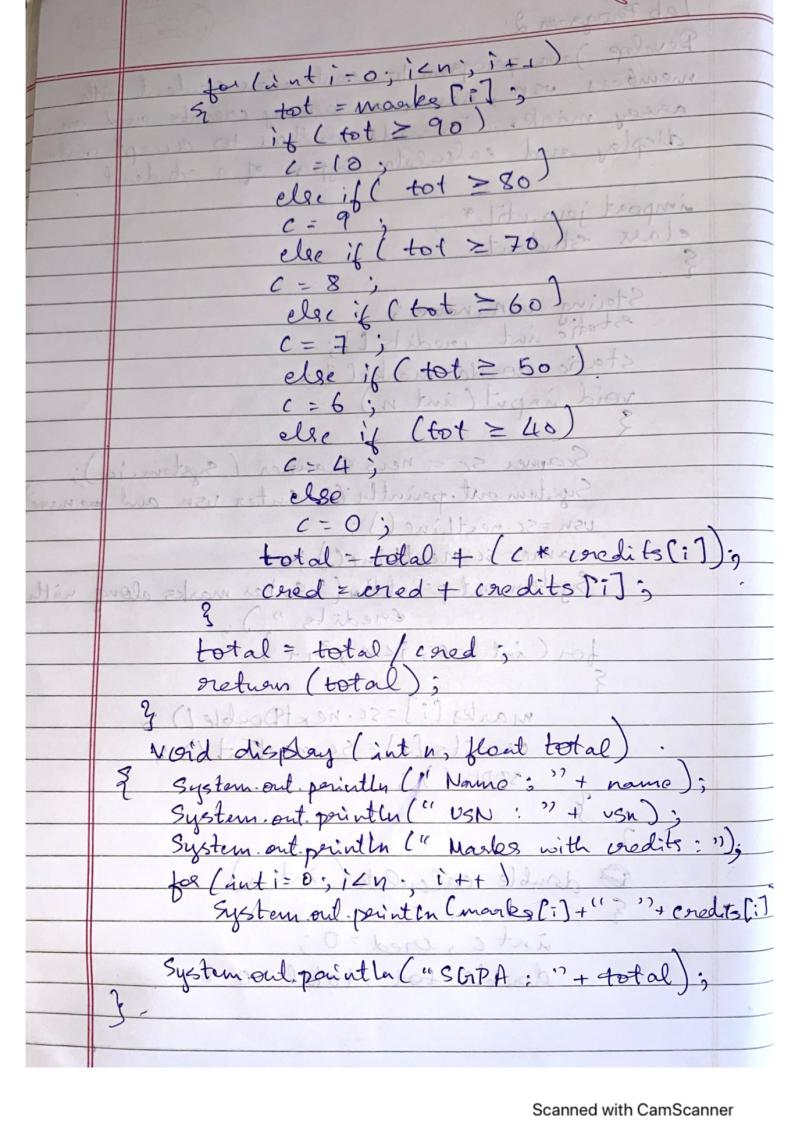 for (int i=0; i<n; i++)
{ tot = marks[i];
if (tot ≥ 90)
c = 10;
else if ( tot ≥ 80)
c = 9;
else if ( tot ≥ 70)
c = 8;
else if (tot ≥ 60)
c = 7;
else if (tot ≥ 50)
c = 6;
else if (tot ≥ 40)
c = 4;
else
c = 0;
total = total + (c * credits[i]);
cred = cred + credits[i];
}
total = total / cred;
return (total);
}
void display (int n, float total)
{ System.out.println (" Name : " + name);
System.out.println (" USN : " + usn);
System.out.println (" Marks with credits : ");
for (int i=0; i<n; i++)
System.out.println (marks[i] + " " + credits[i]
System.out.println (" SGPA : " + total);
}
Scanned with CamScanner